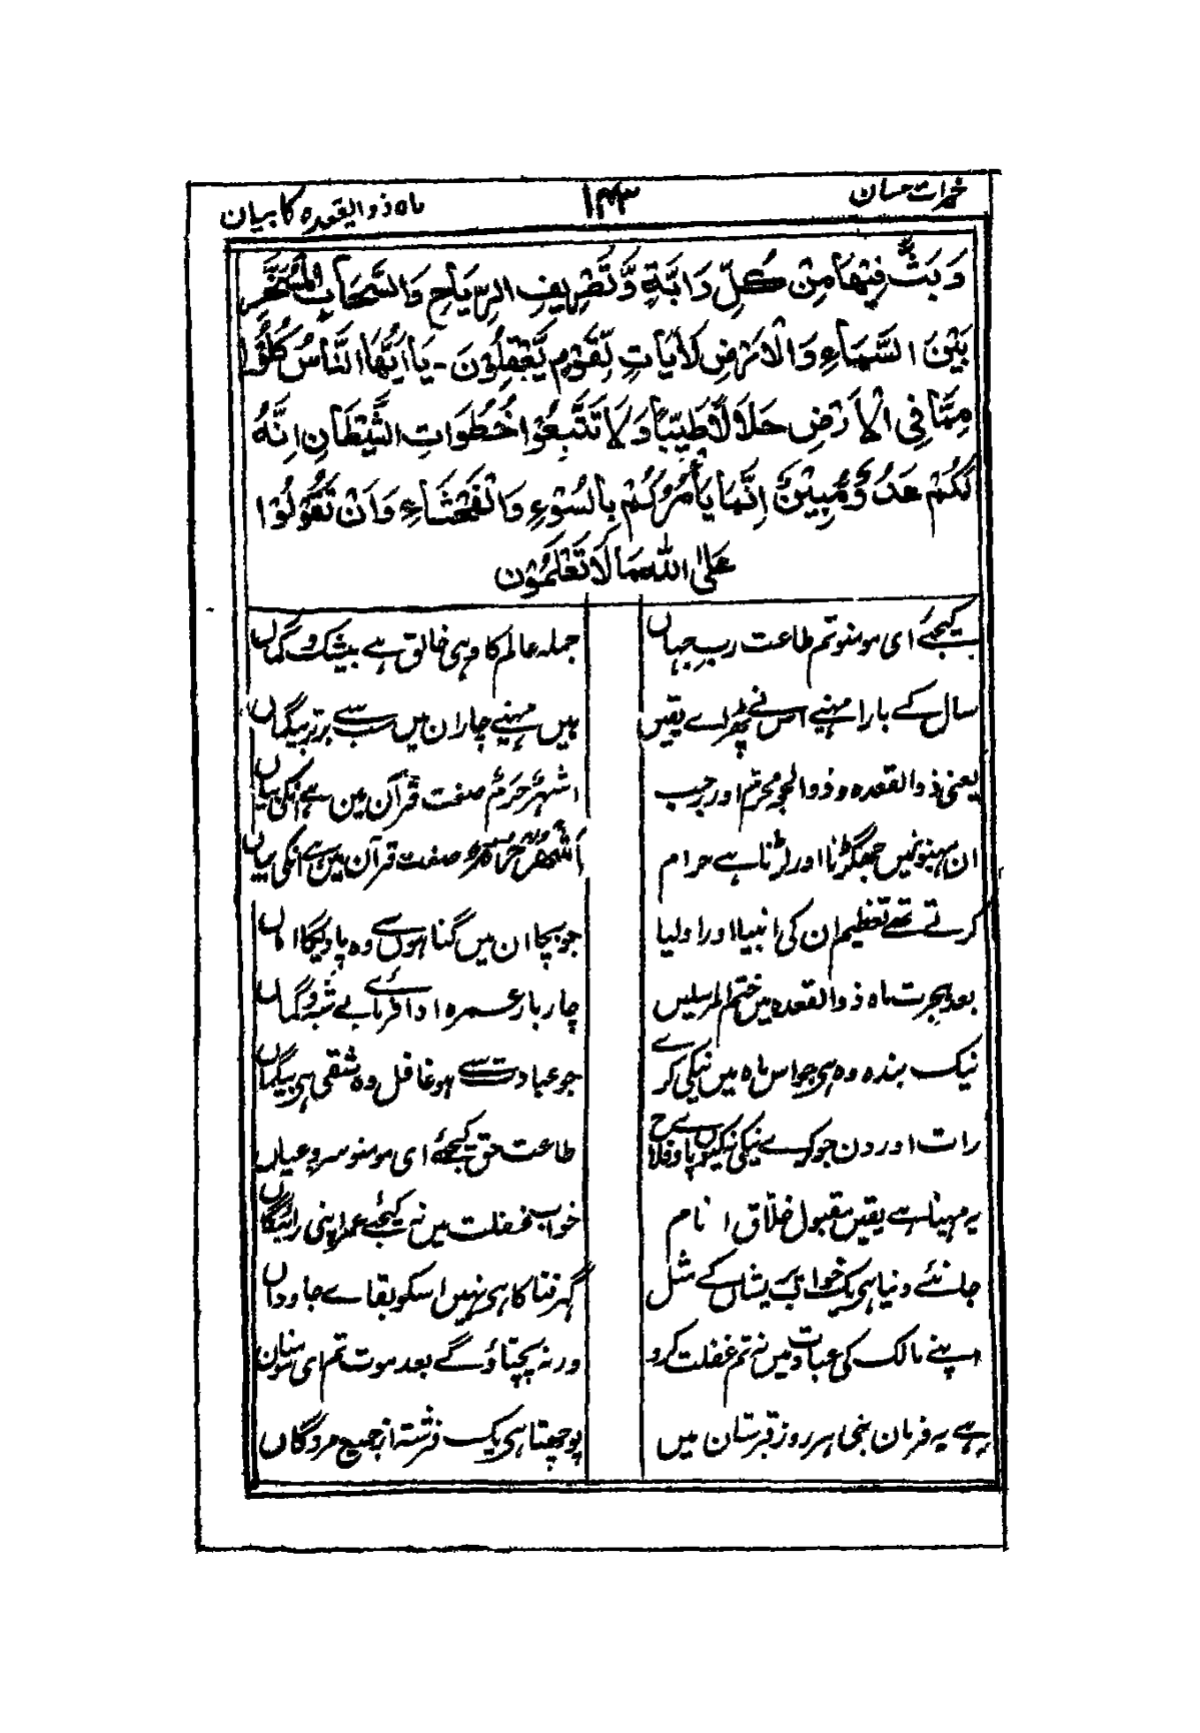 خیرات حسان ۱۴۳ ماہ ذوالقعدہ کا بیان
وَبَثَّ فِيْهَا مِنْ كُلِّ دَابَّةٍ وَّتَصْرِيْفِ الرِّيَاحِ وَالسَّحَابِ الْمُسَخَّرِ
بَيْنَ السَّمَاءِ وَالْاَرْضِ لَاٰيَاتٍ لِّقَوْمٍ يَّعْقِلُوْنَ - يَا اَيُّهَا النَّاسُ كُلُوْا
مِمَّا فِى الْاَرْضِ حَلَالًا طَيِّبًا وَلَا تَتَّبِعُوْا خُطُوَاتِ الشَّيْطَانِ اِنَّهُ
لَكُمْ عَدُوٌّ مُّبِيْنٌ اِنَّمَا يَأْمُرُكُمْ بِالسُّوْءِ وَالْفَحْشَاءِ وَاَنْ تَقُوْلُوْا
عَلَى اللهِ مَا لَا تَعْلَمُوْنَ
کیجئے ای مومنو تم طاعت ربِ جہاں جملہ عالم کا وہی خالق ہے بیشک و گماں
سال کے بارا مہینے اس نے ٹھراے یقیں ہیں مہینے چار ان میں سب سے برتر بیگماں
یعنی ذوالقعدہ و ذوالحجہ محرم اور رجب اشہرٌ حرمٌ صفت قرآن میں ہے انکی بیاں
ان مہینونمیں جھگڑنا اور لڑنا ہے حرام اَشْهُرٌ حُرُمٌ صفت قرآن میں ہے انکی بیاں
کرتے تھے تعظیم ان کی انبیا اور اولیا جو بچا ان میں گناہوں سے وہ پاویگا اماں
بعد ہجرت ماہ ذوالقعدہ میں ختم المرسلیں چار بار عمرہ ادا فرمائے بے شبہ و گماں
نیک بندہ وہ ہی جو اس ماہ میں نیکی کرے جو عبادت سے ہو غافل وہ شقی ہی بیگماں
رات اور دن جو کرے نیکی نیکیوں پاوے فلاح طاعت حق کیجئے ای مومنو سر و عیاں
یہ مہینا ہے یقیں مقبول خلّاق انام خواب غفلت میں نہ کیجئے عمر اپنی رائیگاں
جانئے دنیا ہی یک خواب پریشاں کے مثل گہر فنا کا ہی نہیں اسکو بقاے جاوداں
اپنے مالک کی عبادت میں نہ تم غفلت کرو ورنہ پچتاؤ گے بعد موت تم ای مومنان
ہے یہ فرمان نبی ہر روز قبرستان میں پوچھتا ہی یک فرشتہ از جمیع مردگاں